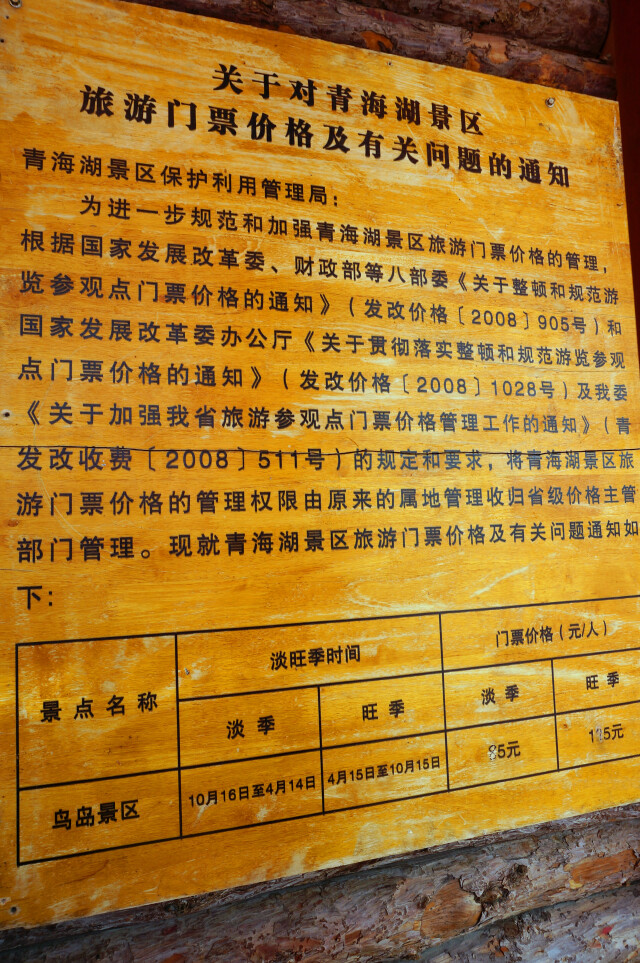 关于对青海湖景区
旅游门票价格及有关问题的通知
青海湖景区保护利用管理局：
为进一步规范和加强青海湖景区旅游门票价格的管理，
根据国家发展改革委、财政部等八部委《关于整顿和规范游
览参观点门票价格的通知》（发改价格〔2008〕905号）和
国家发展改革委办公厅《关于贯彻落实整顿和规范游览参观
点门票价格的通知》（发改价格〔2008〕1028号）及我委
《关于加强我省旅游参观点门票价格管理工作的通知》（青
发改收费〔2008〕511号）的规定和要求，将青海湖景区旅
游门票价格的管理权限由原来的属地管理收归省级价格主管
部门管理。现就青海湖景区旅游门票价格及有关问题通知如
下：
景点名称 淡旺季时间 门票价格（元/人）
淡季 旺季 淡季 旺季
鸟岛景区 10月16日至4月14日 4月15日至10月15日